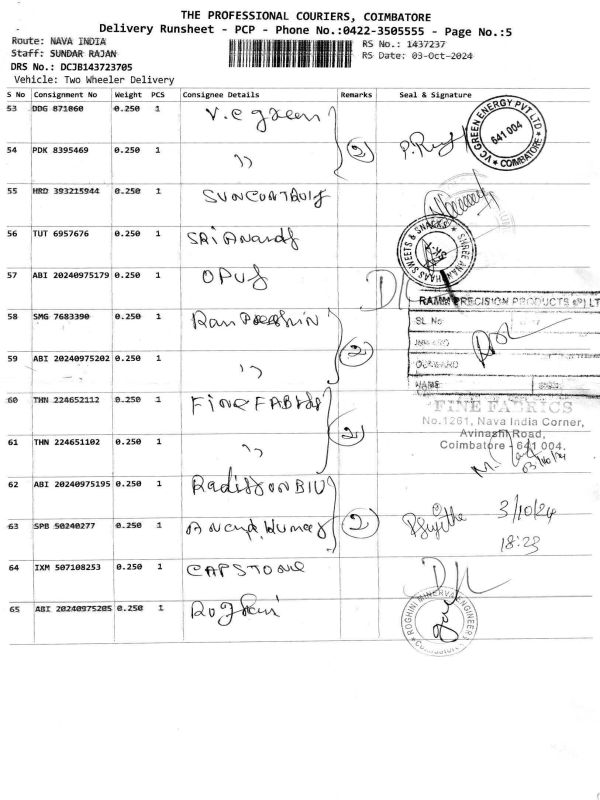 THE PROFESSIONAL COURIERS, COIMBATORE
Delivery Runsheet - PCP - Phone No.:0422-3505555 - Page No.:5
Route: NAVA INDIA
RS No.: 1437237
Staff: SUNDAR RAJAN
RS Date: 03-Oct-2024
DRS No.: DCJB143723705
Vehicle: Two Wheeler Delivery
S No Consignment No Weight PCS Consignee Details Remarks Seal & Signature
53 DDG 871060 0.250 1 V.C green
V C GREEN ENERGY PVT LTD
641 004
COIMBATORE
54 PDK 8395469 0.250 1 " 2
55 HRD 393215944 0.250 1
56 TUT 6957676 0.250 1 SRi Anands
SHREE ANANDHAAS SWEETS & SNACKS
57 ABI 20240975179 0.250 1 OPUS
RAMM PRECISION PRODUCTS (P) LT
58 SMG 7683390 0.250 1
SL No
INWARD
59 ABI 20240975202 0.250 1 " 2
OUTWARD
NAME
60 THN 224652112 0.250 1 Fine FABrics
FINE FABRICS
No.1261, Nava India Corner,
Avinashi Road,
Coimbatore - 641 004.
61 THN 224651102 0.250 1 " 2
03/10/24
62 ABI 20240975195 0.250 1 Radisson BlU
3/10/24
63 SPB 50240277 0.250 1 2
18:23
64 IXM 507108253 0.250 1 CAPSTONE
65 ABI 20240975205 0.250 1 Roghini
ROGHINI MINERVA ENGINEER